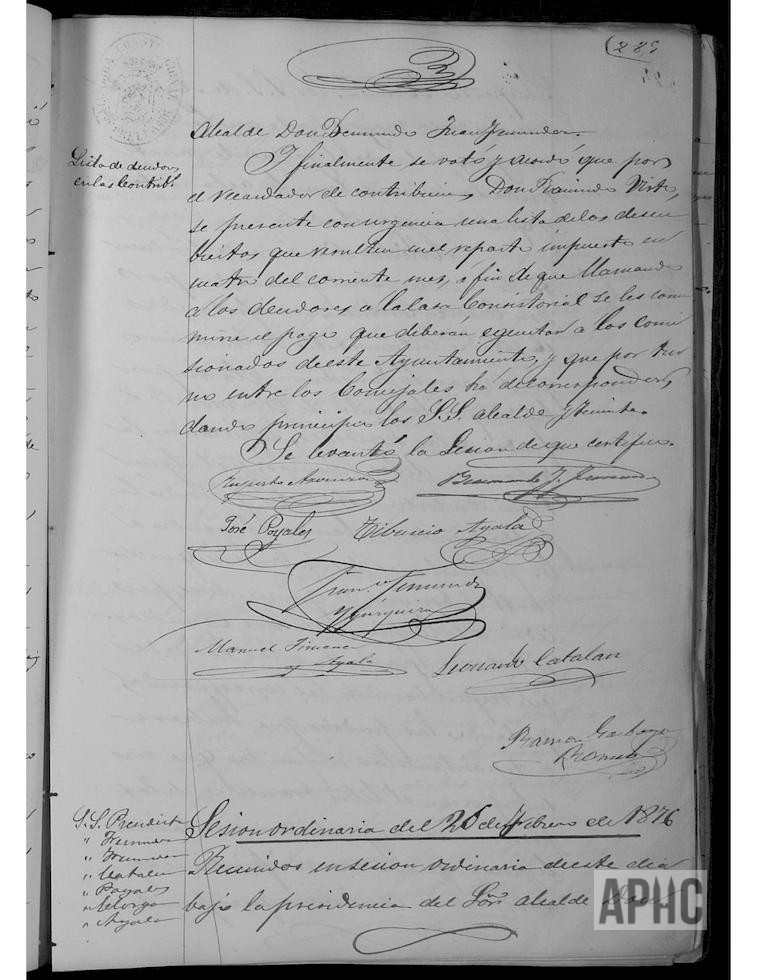 (285
ALCALDIA CONSTITUCIONAL
Alcalde Don Bernardo Juan Fernandez.
Lista de deudores
en las Contribs
Y finalmente se votó y acordó que por
el recaudador de contribuciones, Don Raimundo Virto,
se presente con urgencia una lista de los descu
biertos que resulten en el reparto impuesto en
cuatro del corriente mes, a fin de que llamando
a los deudores a la Casa Consistorial se les con
mine el pago que deberan egecutar a los comi
sionados de este Ayuntamiento, y que por tur
no entre los Concejales ha de corresponder,
dando principio los S.S. Alcalde y Teniente.
Se levantó la Sesion de que certifico.
José Poyales Tiburcio Ayala
Manuel Jimenez
y Ayala
Leonardo Catalan
Ramon
S.S. President
" Catalan
" Poyales
" Ayala
Sesion ordinaria del 26 de Febrero de 1876
Reunidos en sesion ordinaria de este dia
bajo la presidencia del Sor. Alcalde Don
APHC